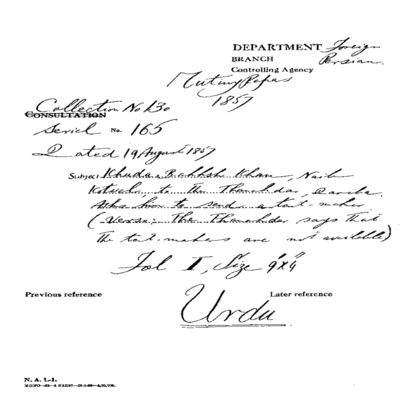 DEPARTMENT Foreign
BRANCH Persian
Controlling Agency
Mutiny Papers
1857
Collection No 130
CONSULTATION
Serial No. 165
Dated 19 August 1857
Subject Khuda Bakhsh Khan, Naib
Kotwal to the Thanahdar,
Asks him to send a tat-maker
(Verso: The Thanahdar says that
the tat-makers are not available)
Fol I, Size 9"x4"
Previous reference
Later reference
Urdu
N. A. I.-I.